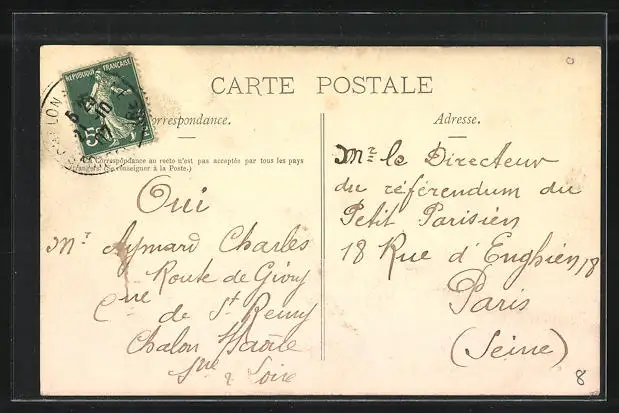 CARTE POSTALE
RÉPUBLIQUE FRANÇAISE
5
CHALON
6
10
07
Correspondance.
Correspondance au recto n'est pas acceptée par tous les pays
(Se renseigner à la Poste.)
Oui
Mr Aymard Charles
Route de Givry
Cne de St Remy
Chalon Saône
Sne & Loire
Adresse.
Mr le Directeur
du référendum du
Petit Parisien
18 Rue d'Enghien, 18
Paris
(Seine)
8